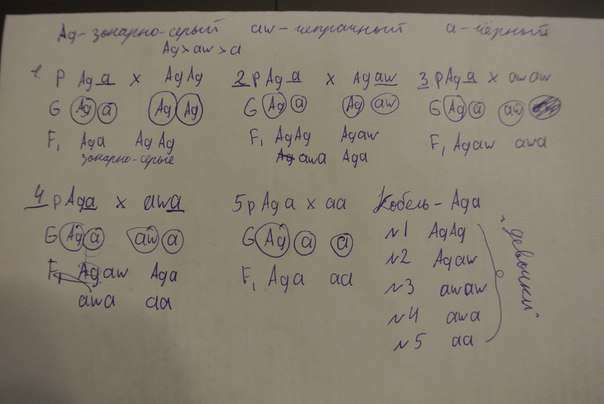 Ag - зонарно-серый aw - чепрачный a - чёрный
Ag > aw > a
1 P Ag a x Ag Ag
G Ag a Ag Ag
F1 Ag a Ag Ag
зонарно-серые
2 P Ag a x Ag aw
G Ag a Ag aw
F1 Ag Ag Ag aw
aw a Ag a
3 P Ag a x aw aw
G Ag a aw
F1 Ag aw aw a
4 P Ag a x aw a
G Ag a aw a
F1 Ag aw Ag a
aw a aa
5 P Ag a x aa
G Ag a a
F1 Ag a aa
Кобель - Ag a
N1 Ag Ag
N2 Ag aw
N3 aw aw
N4 aw a
N5 aa
"девочки"